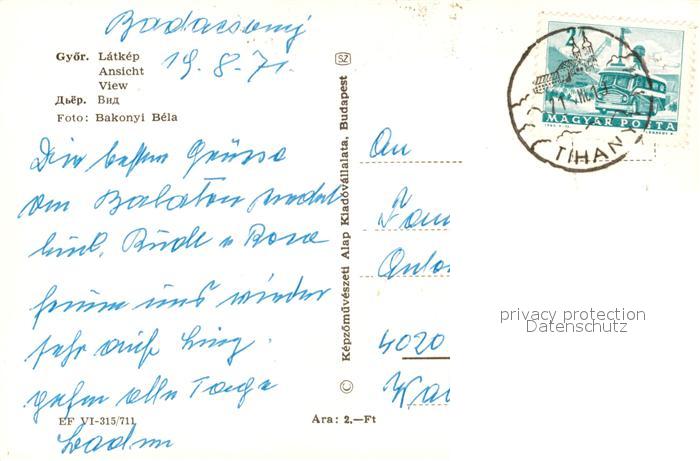 Badacsony
19.8.71.
Győr. Látkép
Ansicht
View
Дьёр. Вид
Foto: Bakonyi Béla
Die besten Grüsse
vom Balaton sendet
Rudi u Rosa
freuen uns wieder
sehr auf Linz.
alle Tage
baden
EF VI-315/711
Ara: 2.—Ft
© Képzőművészeti Alap Kiadóvállalata, Budapest
SZ
An
Fam
Anto
4020
2
MAGYAR POSTA
TIHANY
privacy protection
Datenschutz